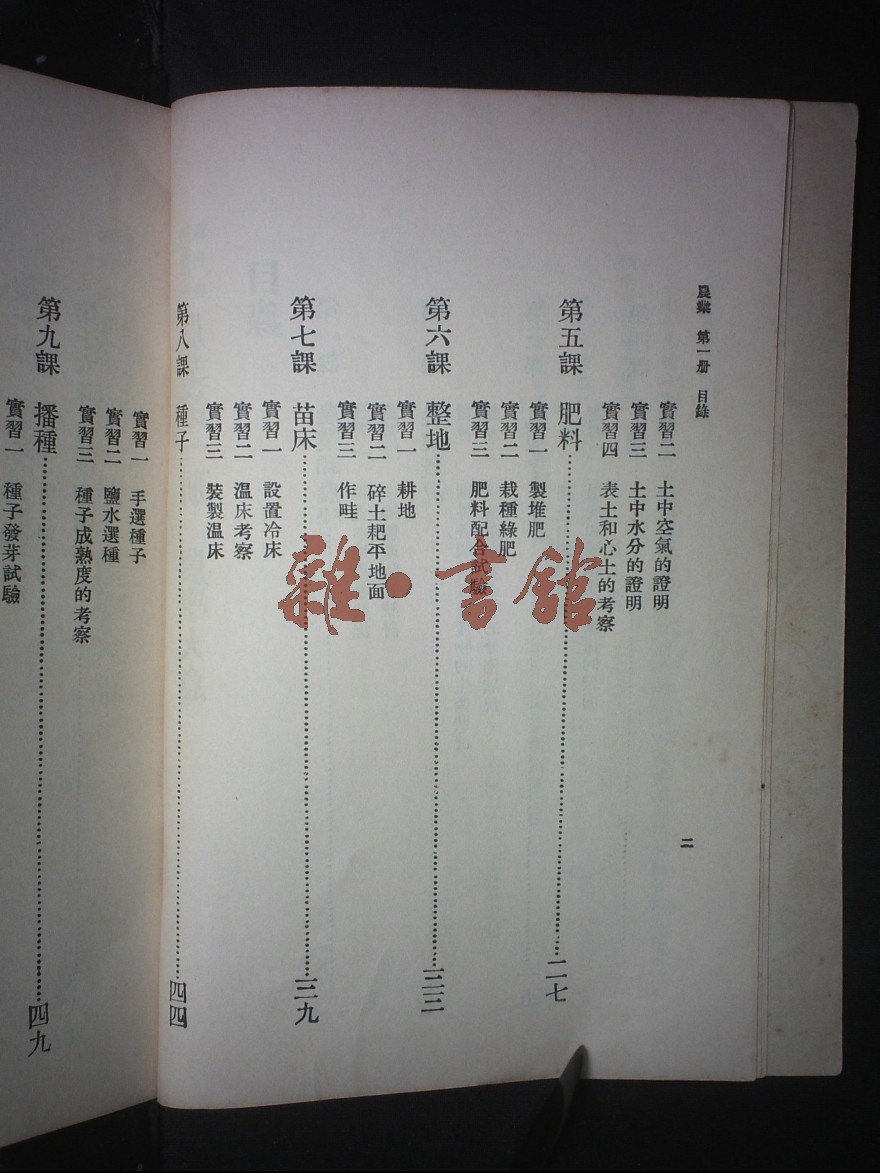 農業 第一册 目錄
實習二 土中空氣的證明
實習三 土中水分的證明
實習四 表土和心土的考察
第五課 肥料……二七
實習一 製堆肥
實習二 栽種綠肥
實習三 肥料配合試驗
第六課 整地……三三
實習一 耕地
實習二 碎土耙平地面
實習三 作畦
第七課 苗床……三九
實習一 設置冷床
實習二 温床考察
實習三 裝製温床
二
第八課 種子……四四
實習一 手選種子
實習二 鹽水選種
實習三 種子成熟度的考察
第九課 播種……四九
實習一 種子發芽試驗
雜·書館